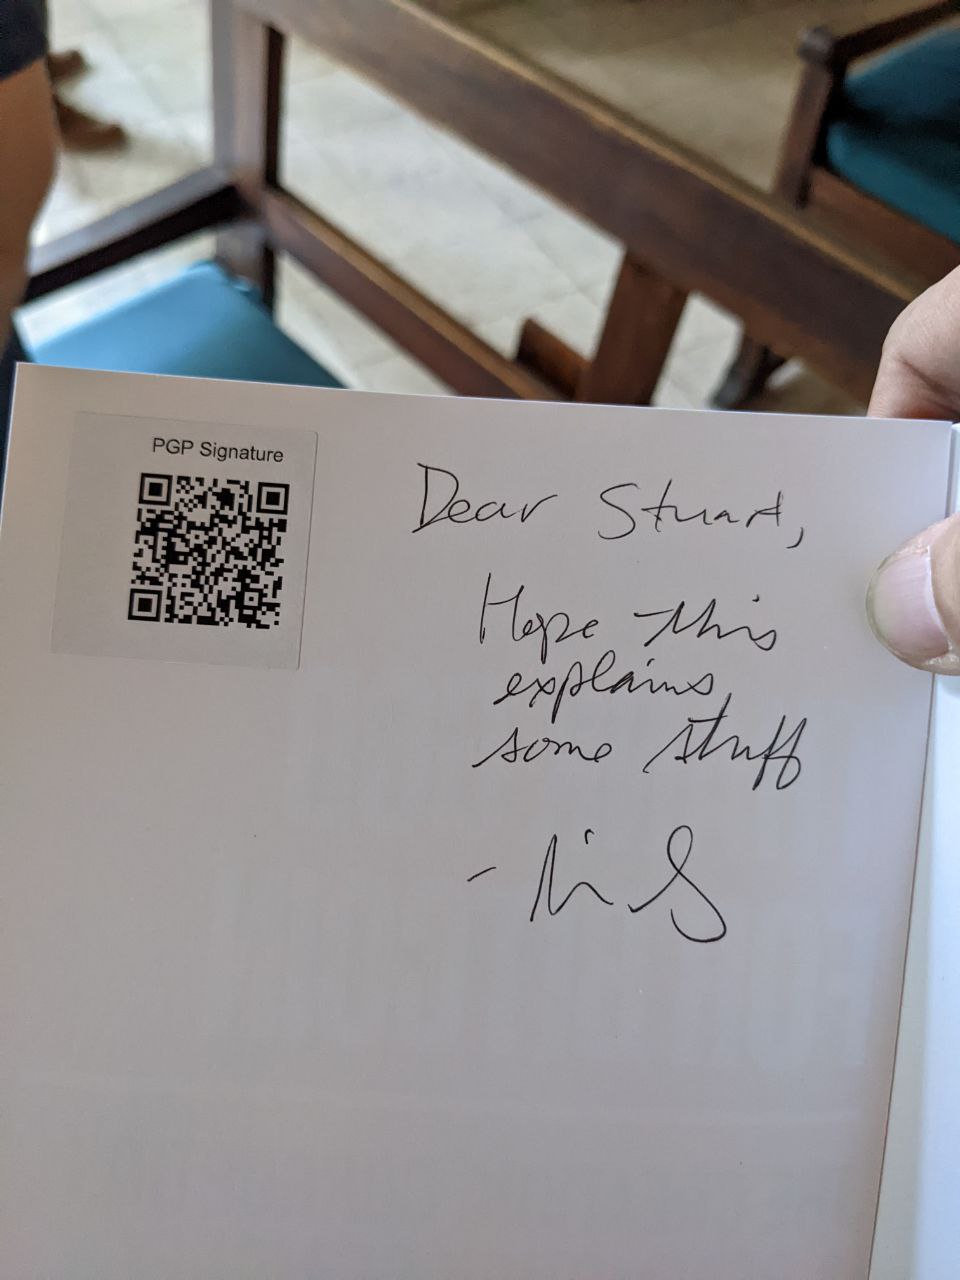 PGP Signature
Dear Stuart,
Hope this
explains
some stuff